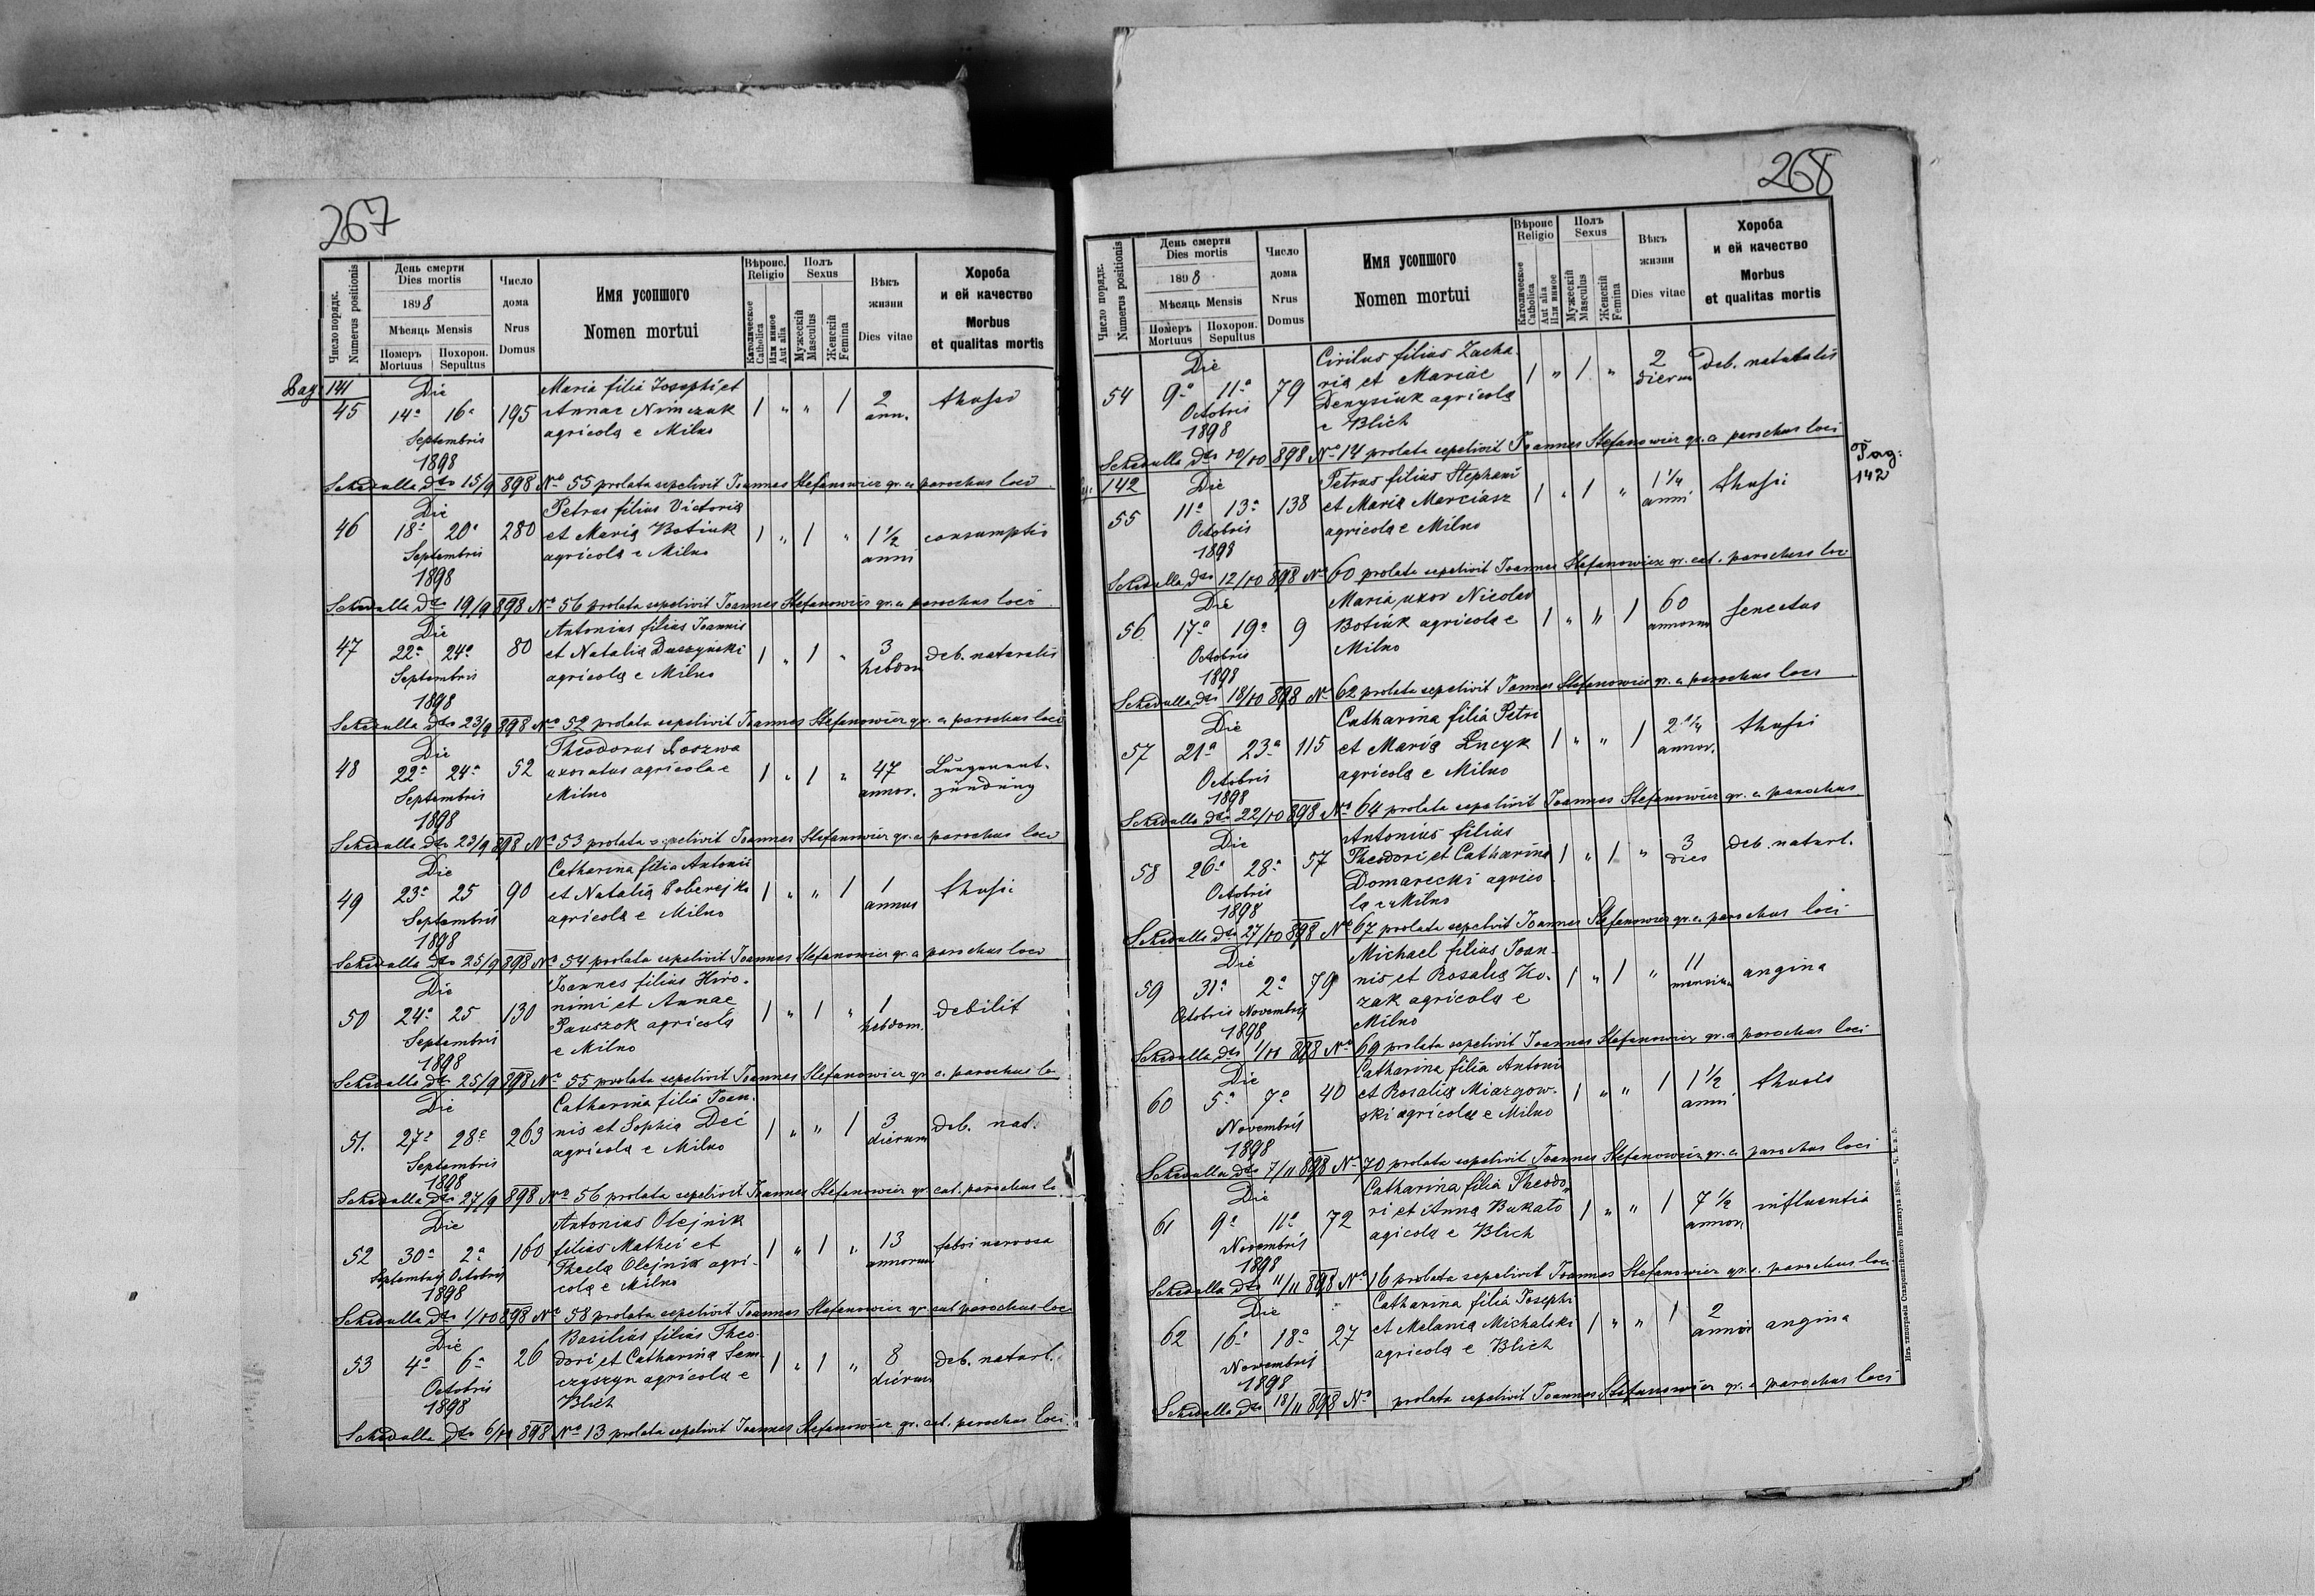 267
Число порядк.
Numerus positionis
День смерти
Dies mortis
1898
Мѣсяць Mensis
Померъ Mortuus
Похорон. Sepultus
Число дома
Nrus Domus
Имя усопшого
Nomen mortui
Вѣроис.
Religio
Католическое
Catholica
Или иное
Aut alia
Полъ
Sexus
Мужескій
Masculus
Женскій
Femina
Вѣкъ жизни
Dies vitae
Хороба
и ей качество
Morbus
et qualitas mortis
Pag. 141
Die Maria filia Josephi et
45 14a 16a 195 Annae Nimczuk 1 " " 1 2 ann. thusis
Septembris agricola e Milno
1898
Schedulla dto 15/9 898 No 55 prolata sepelivit Joannes Stefanowicz gr. c. parochus loci
Die Petrus filius Victoria
46 18a 20a 280 et Maria Botiuk 1 " 1 " 1 1/2 anni consumptio
Septembris agricola e Milno
1898
Schedulla dto 19/9 898 No 56 prolata sepelivit Joannes Stefanowicz gr. c. parochus loci
Die Antonius filius Joannis
47 22a 24a 80 et Natalia Duszyński 1 " 1 " 3 hebdom deb. naturalis
Septembris agricola e Milno
1898
Schedulla dto 23/9 898 No 52 prolata sepelivit Joannes Stefanowicz gr. c. parochus loci
Die Theodorus Loszwa
48 22a 24a 52 uxoratus agricola e 1 " 1 " 47 annor. Lungenent-
Septembris Milno zündung
1898
Schedulla dto 23/9 898 No 53 prolata sepelivit Joannes Stefanowicz gr. c. parochus loci
Die Catharina filia Antonii
49 23a 25 90 et Natalia Poberejko 1 " " 1 1 annus thusis
Septembris agricola e Milno
1898
Schedulla dto 25/9 898 No 54 prolata sepelivit Joannes Stefanowicz gr. c. parochus loci
Die Joannes filius Hiro-
50 24a 25 130 nimi et Annae 1 " 1 " 1 hebdom. debilit
Septembris Pauszok agricola
1898 e Milno
Schedulla dto 25/9 898 No 55 prolata sepelivit Joannes Stefanowicz gr. c. parochus lo
Die Catharina filia Joan-
51. 27a 28a 263 nis et Sophia Deć 1 " " 1 3 dierum deb. nat.
Septembris agricola e Milno
1898
Schedulla dto 27/9 898 No 56 prolata sepelivit Joannes Stefanowicz gr. cat. parochus lo
Die Antonius Olejnik
52 30a 2a 160 filius Mathei et 1 " 1 " 13 annorum febri nervosa
Septembris Octobris Thecla Olejnik agri-
1898 cola e Milno
Schedulla dto 1/10 898 No 58 prolata sepelivit Joannes Stefanowicz gr. cat parochus loci
Die Basilius filius Theo-
53 4a 6a 26 dori et Catharina Sem- 1 " 1 " 8 dierum deb. naturl.
Octobris czyszyn agricola e
1898 Blich
Schedulla dto 6/10 898 No 13 prolata sepelivit Joannes Stefanowicz gr. cat. parochus loci.
268
Число порядк.
Numerus positionis
День смерти
Dies mortis
1898
Мѣсяць Mensis
Померъ Mortuus
Похорон. Sepultus
Число дома
Nrus Domus
Имя усопшого
Nomen mortui
Вѣроис
Religio
Католическое
Catholica
Aut alia
Или иное
Полъ
Sexus
Мужескій
Masculus
Женскій
Femina
Вѣкъ жизни
Dies vitae
Хороба
и ей качество
Morbus
et qualitas mortis
Die Cirilus filius Zacha-
54 9a 11a 79 ria et Mariae 1 " 1 " 2 dierum deb. naturalis
Octobris Denysiuk agricola
1898 e Blich
Schedulla dto 10/10 898 No 14 prolata sepelivit Joannes Stefanowicz gr. c. parochus loci
Pag: 142
142 Die Petrus filius Stephani
55 11a 13a 138 et Maria Marciasz 1 " 1 " 1 1/4 anni thusis
Octobris agricola e Milno
1898
Schedulla dto 12/10 898 No 60 prolata sepelivit Joannes Stefanowicz gr. cat. parochus loci
Die Maria uxor Nicolao
56 17a 19a 9 Botiuk agricola e 1 " " 1 60 annorum senectus
Octobris Milno
1898
Schedulla dto 18/10 898 No 62 prolata sepelivit Joannes Stefanowicz gr. c. parochus loci
Die Catharina filia Petri
57 21a 23a 115 et Maria Łucyk 1 " " 1 2 1/4 annor. thusis
Octobris agricola e Milno
1898
Schedulla dto 22/10 898 No 64 prolata sepelivit Joannes Stefanowicz gr. c. parochus
Die Antonius filius
58 26a 28a 57 Theodori et Catharina 1 " 1 " 3 dies deb. naturl.
Octobris Domarecki agrico
1898 la e Milno
Schedulla dto 27/10 898 No 67 prolata sepelivit Joannes Stefanowicz gr. c. parochus loci
Die Michael filius Joan-
59 31a 2a 79 nis et Rosalia Ko- 1 " 1 " 11 mensium angina
Octobris Novembris zak agricola e
1898 Milno
Schedulla dto 1/11 898 No 69 prolata sepelivit Joannes Stefanowicz gr. c. parochus loci
Die Catharina filia Antoni
60 5a 7a 40 et Rosalia Miazgow- 1 " " 1 1 1/2 anni thusis
Novembris ski agricola e Milno
1898
Schedulla dto 7/11 898 No 70 prolata sepelivit Joannes Stefanowicz gr. c. parochus loci
Die Catharina filia Theodo-
61 9a 11a 72 ri et Anna Bukato 1 " " 1 7 1/2 annor. influentia
Novembris agicola e Blich
1898
Schedulla dto 11/11 898 No 16 prolata sepelivit Joannes Stefanowicz gr. c. parochus loci
Die Catharina filia Josephi
62 16a 18a 27 et Melania Michalski 1 " " 1 2 annor angina
Novembris agricola e Blich
1898
Schedulla dto 18/11 898 No prolata sepelivit Joannes Stefanowicz gr. c. parochus loci
Изъ типографіи Ставропигійского Института